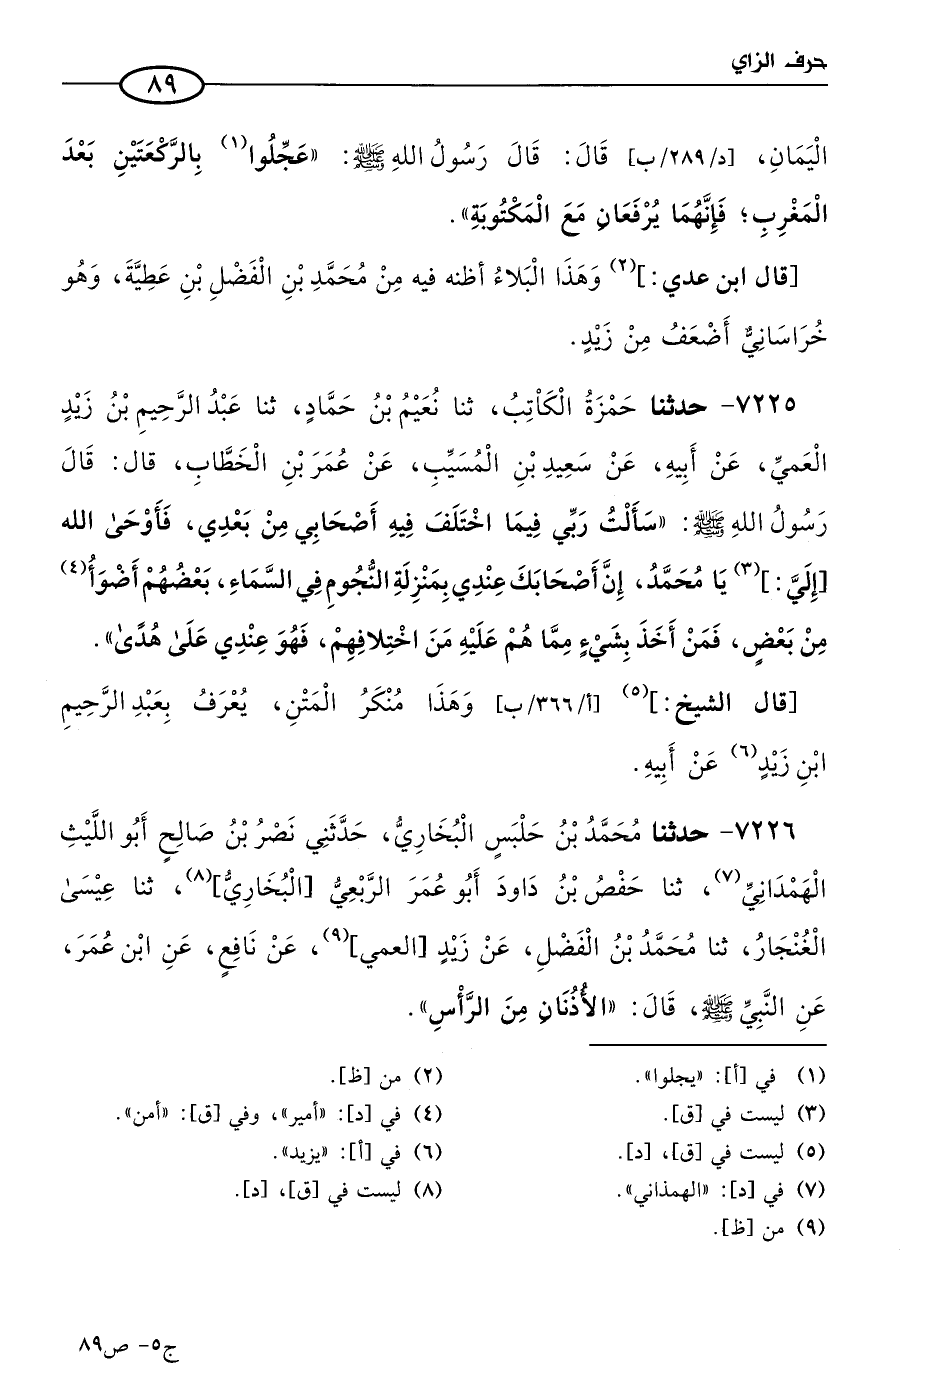 حرف الزاي
٨٩
الْيَمَانِ، [د/٢٨٩/ب] قَالَ: قَالَ رَسُولُ اللهِ ﷺ: «عَجِّلُوا(١) بِالرَّكْعَتَيْنِ بَعْدَ
الْمَغْرِبِ؛ فَإِنَّهُمَا يُرْفَعَانِ مَعَ الْمَكْتُوبَةِ».
[قال ابن عدي:](٢) وَهَذَا الْبَلاءُ أظنه فيه مِنْ مُحَمَّدِ بْنِ الْفَضْلِ بْنِ عَطِيَّةَ، وَهُو
خُرَاسَانِيٌّ أَضْعَفُ مِنْ زَيْدٍ.
٧٢٢٥- حدثنا حَمْزَةُ الْكَاتِبُ، ثنا نُعَيْمُ بْنُ حَمَّادٍ، ثنا عَبْدُ الرَّحِيمِ بْنُ زَيْدٍ
الْعَمِيِّ، عَنْ أَبِيهِ، عَنْ سَعِيدِ بْنِ الْمُسَيِّبِ، عَنْ عُمَرَ بْنِ الْخَطَّابِ، قال: قَالَ
رَسُولُ اللهِ ﷺ: «سَأَلْتُ رَبِّي فِيمَا اخْتَلَفَ فِيهِ أَصْحَابِي مِنْ بَعْدِي، فَأَوْحَىٰ الله
[إِلَيَّ:](٣) يَا مُحَمَّدُ، إِنَّ أَصْحَابَكَ عِنْدِي بِمَنْزِلَةِ النُّجُومِ فِي السَّمَاءِ، بَعْضُهُمْ أَضْوَأُ(٤)
مِنْ بَعْضٍ، فَمَنْ أَخَذَ بِشَيْءٍ مِمَّا هُمْ عَلَيْهِ مَنَ اخْتِلافِهِمْ، فَهُوَ عِنْدِي عَلَىٰ هُدًىٰ».
[قال الشيخ:](٥) [أ/٣٦٦/ب] وَهَذَا مُنْكَرُ الْمَتْنِ، يُعْرَفُ بِعَبْدِ الرَّحِيمِ
ابْنِ زَيْدٍ(٦) عَنْ أَبِيهِ.
٧٢٢٦- حدثنا مُحَمَّدُ بْنُ حَلْبَسٍ الْبُخَارِيُّ، حَدَّثَنِي نَصْرُ بْنُ صَالِحٍ أَبُو اللَّيْثِ
الْهَمْدَانِيِّ(٧)، ثنا حَفْصُ بْنُ دَاودَ أَبُو عُمَرَ الرَّبْعِيُّ [الْبُخَارِيُّ](٨)، ثنا عِيْسَىٰ
الْغُنْجَارُ، ثنا مُحَمَّدُ بْنُ الْفَضْلِ، عَنْ زَيْدٍ [العمي](٩)، عَنْ نَافِعٍ، عَنِ ابْن عُمَرَ،
عَنِ النَّبِيِّ ﷺ، قَالَ: «الأُذُنَانِ مِنَ الرَّأْسِ».
(١) في [أ]: «يجلوا». (٢) من [ظ].
(٣) ليست في [ق]. (٤) في [د]: «أمير»، وفي [ق]: «أمن».
(٥) ليست في [ق]، [د]. (٦) في [أ]: «يزيد».
(٧) في [د]: «الهمذاني». (٨) ليست في [ق]، [د].
(٩) من [ظ].
ج٥- ص٨٩